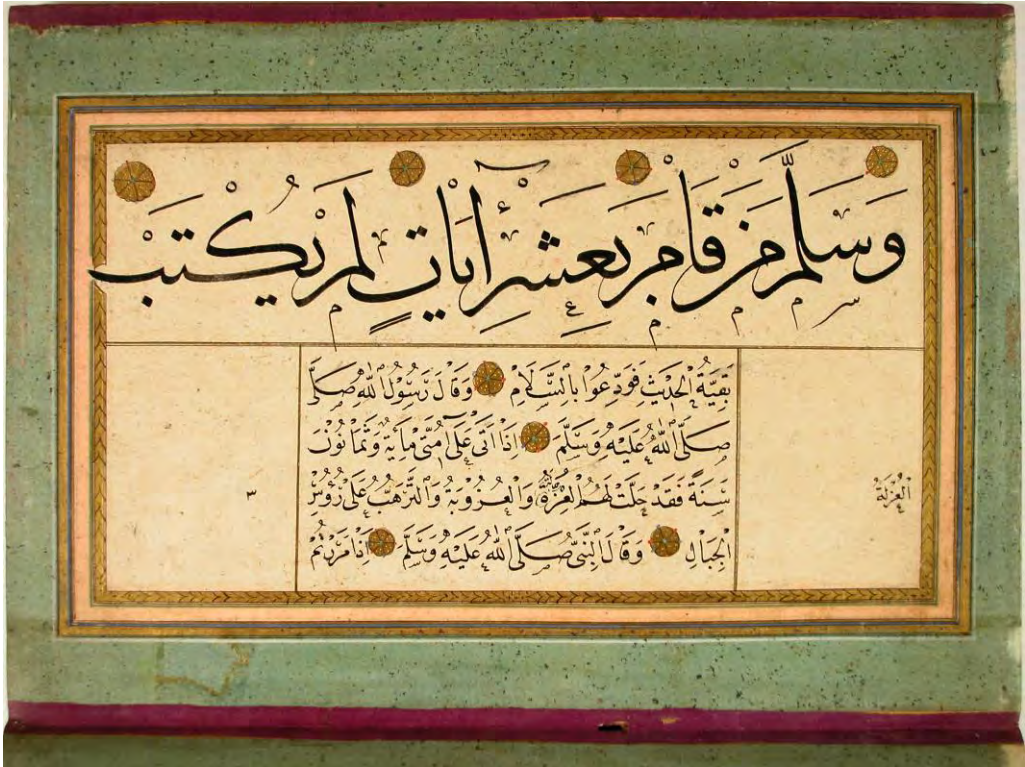 وَسَلَّمَ مَنْ قَامَ بِعَشْرِ آيَاتٍ لَمْ يُكْتَبْ
بَقِيَّةُ الْحَدِيثِ فَوَدِّعُوا بِالسَّلَامِ وَقَالَ رَسُولُ اللّٰهِ صَلَّى
صَلَّى اللّٰهُ عَلَيْهِ وَسَلَّمَ اِذَا اَتَى عَلَى اُمَّتِى مِايَةٌ وَثَمَانُونَ
سَنَةً فَقَدْ حَلَّتْ لَهُمُ الْعُزْلَةُ وَالْعُزُوبَةُ وَالتَّرَهُّبُ عَلَى رُؤُسِ
الْجِبَالِ وَقَالَ النَّبِىُّ صَلَّى اللّٰهُ عَلَيْهِ وَسَلَّمَ اِذَا مَرَرْتُمْ
الْعُزْلَةُ
٣